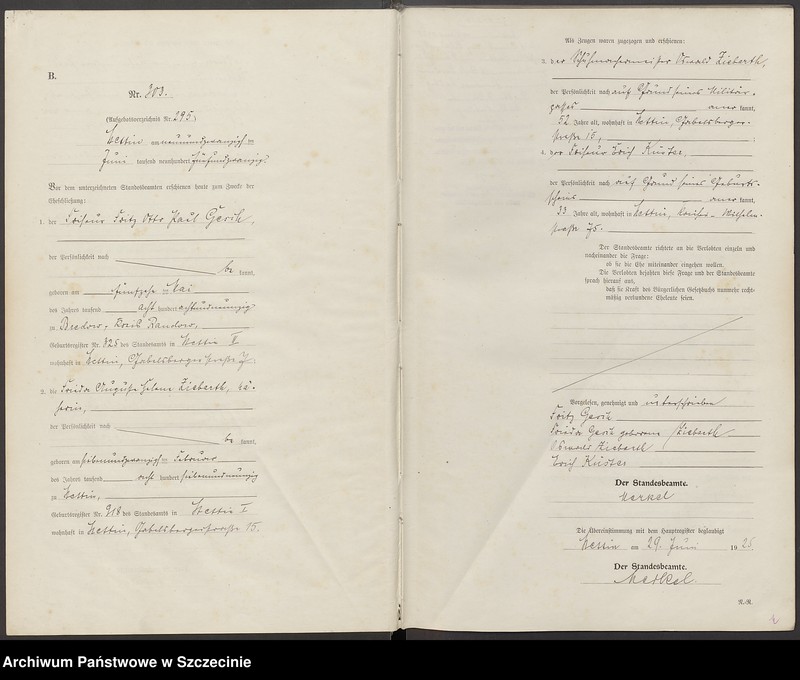 B.
Nr. 303.
(Aufgebotsverzeichnis Nr. 295)
Stettin am neunundzwanzigsten
Juni tausend neunhundert fünfundzwanzig
Vor dem unterzeichneten Standesbeamten erschienen heute zum Zwecke der
Eheschließung:
1. der Friseur Fritz Otto Paul Gerth,
der Persönlichkeit nach
be kannt,
geboren am fünfzehnten Mai
des Jahres tausend acht hundert achtundneunzig
zu Bredow, Kreis Randow,
Geburtsregister Nr. 325 des Standesamts in Stettin
wohnhaft in Stettin, Gabelsbergerstraße
2. die Frieda Auguste Helene Zieberth,
der Persönlichkeit nach
be kannt,
geboren am siebenundzwanzigsten Februar
des Jahres tausend acht hundert siebenundneunzig
zu Stettin,
Geburtsregister Nr. 918 des Standesamts in Stettin I
wohnhaft in Stettin, Gabelsbergerstraße 15.
Als Zeugen waren zugezogen und erschienen:
3. der Schuhmachermeister Oswald Zieberth,
der Persönlichkeit nach auf Grund seines Militär-
passes aner kannt,
52 Jahre alt, wohnhaft in Stettin, Gabelsberger-
straße 15,
4. der Friseur Erich Küster,
der Persönlichkeit nach auf Grund seines Geburts-
scheins aner kannt,
33 Jahre alt, wohnhaft in Stettin, Kaiser-Wilhelm-
straße 75.
Der Standesbeamte richtete an die Verlobten einzeln und
nacheinander die Frage:
ob sie die Ehe miteinander eingehen wollen.
Die Verlobten bejahten diese Frage und der Standesbeamte
sprach hierauf aus,
daß sie kraft des Bürgerlichen Gesetzbuchs nunmehr recht-
mäßig verbundene Eheleute seien.
Vorgelesen, genehmigt und unterschrieben
Fritz Gerth
Frieda Gerth geborene Zieberth
Oswald Zieberth
Erich Küster
Der Standesbeamte.
Merkel
Die Übereinstimmung mit dem Hauptregister beglaubigt
Stettin am 29. Juni 1925.
Der Standesbeamte.
Merkel
N.R.
Archiwum Państwowe w Szczecinie